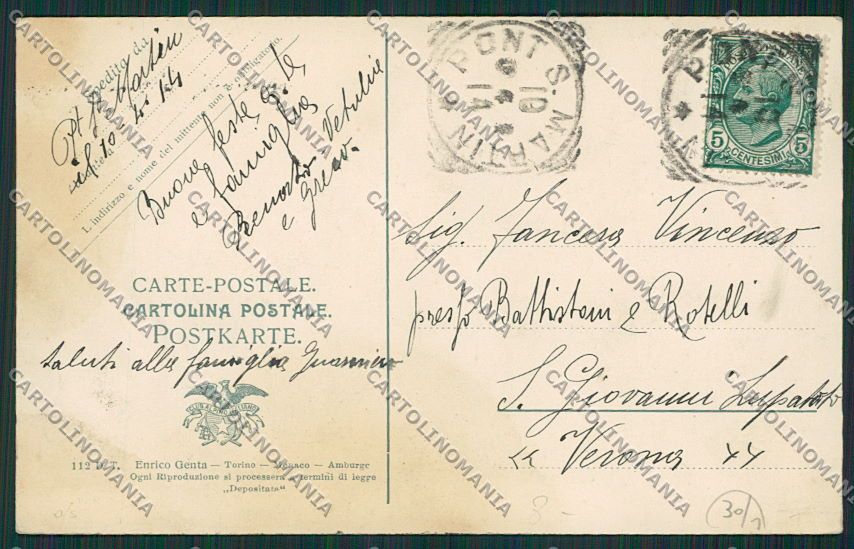 Spedito da
Pt S. Martin
il 10 4 14
L'indirizzo e nome del mittente non è obbligatorio.
Buone feste a te
e famiglia
Renato Vetulia
e Greco.
CARTE-POSTALE.
CARTOLINA POSTALE.
POSTKARTE.
saluti alla famiglia Guarnieri
CLUB ALPINO ITALIANO
112 D. T. Enrico Genta — Torino — Monaco — Amburgo
Ogni Riproduzione si processerà a termini di legge
„Depositata"
PONT S. MARTIN
10
14
POSTE ITALIANE
5 CENTESIMI 5
Sig. Fancesa Vincenzo
presso Battistoni e Rotelli
S. Giovanni Lupatoto
Verona
30/
CARTOLINOMANIA